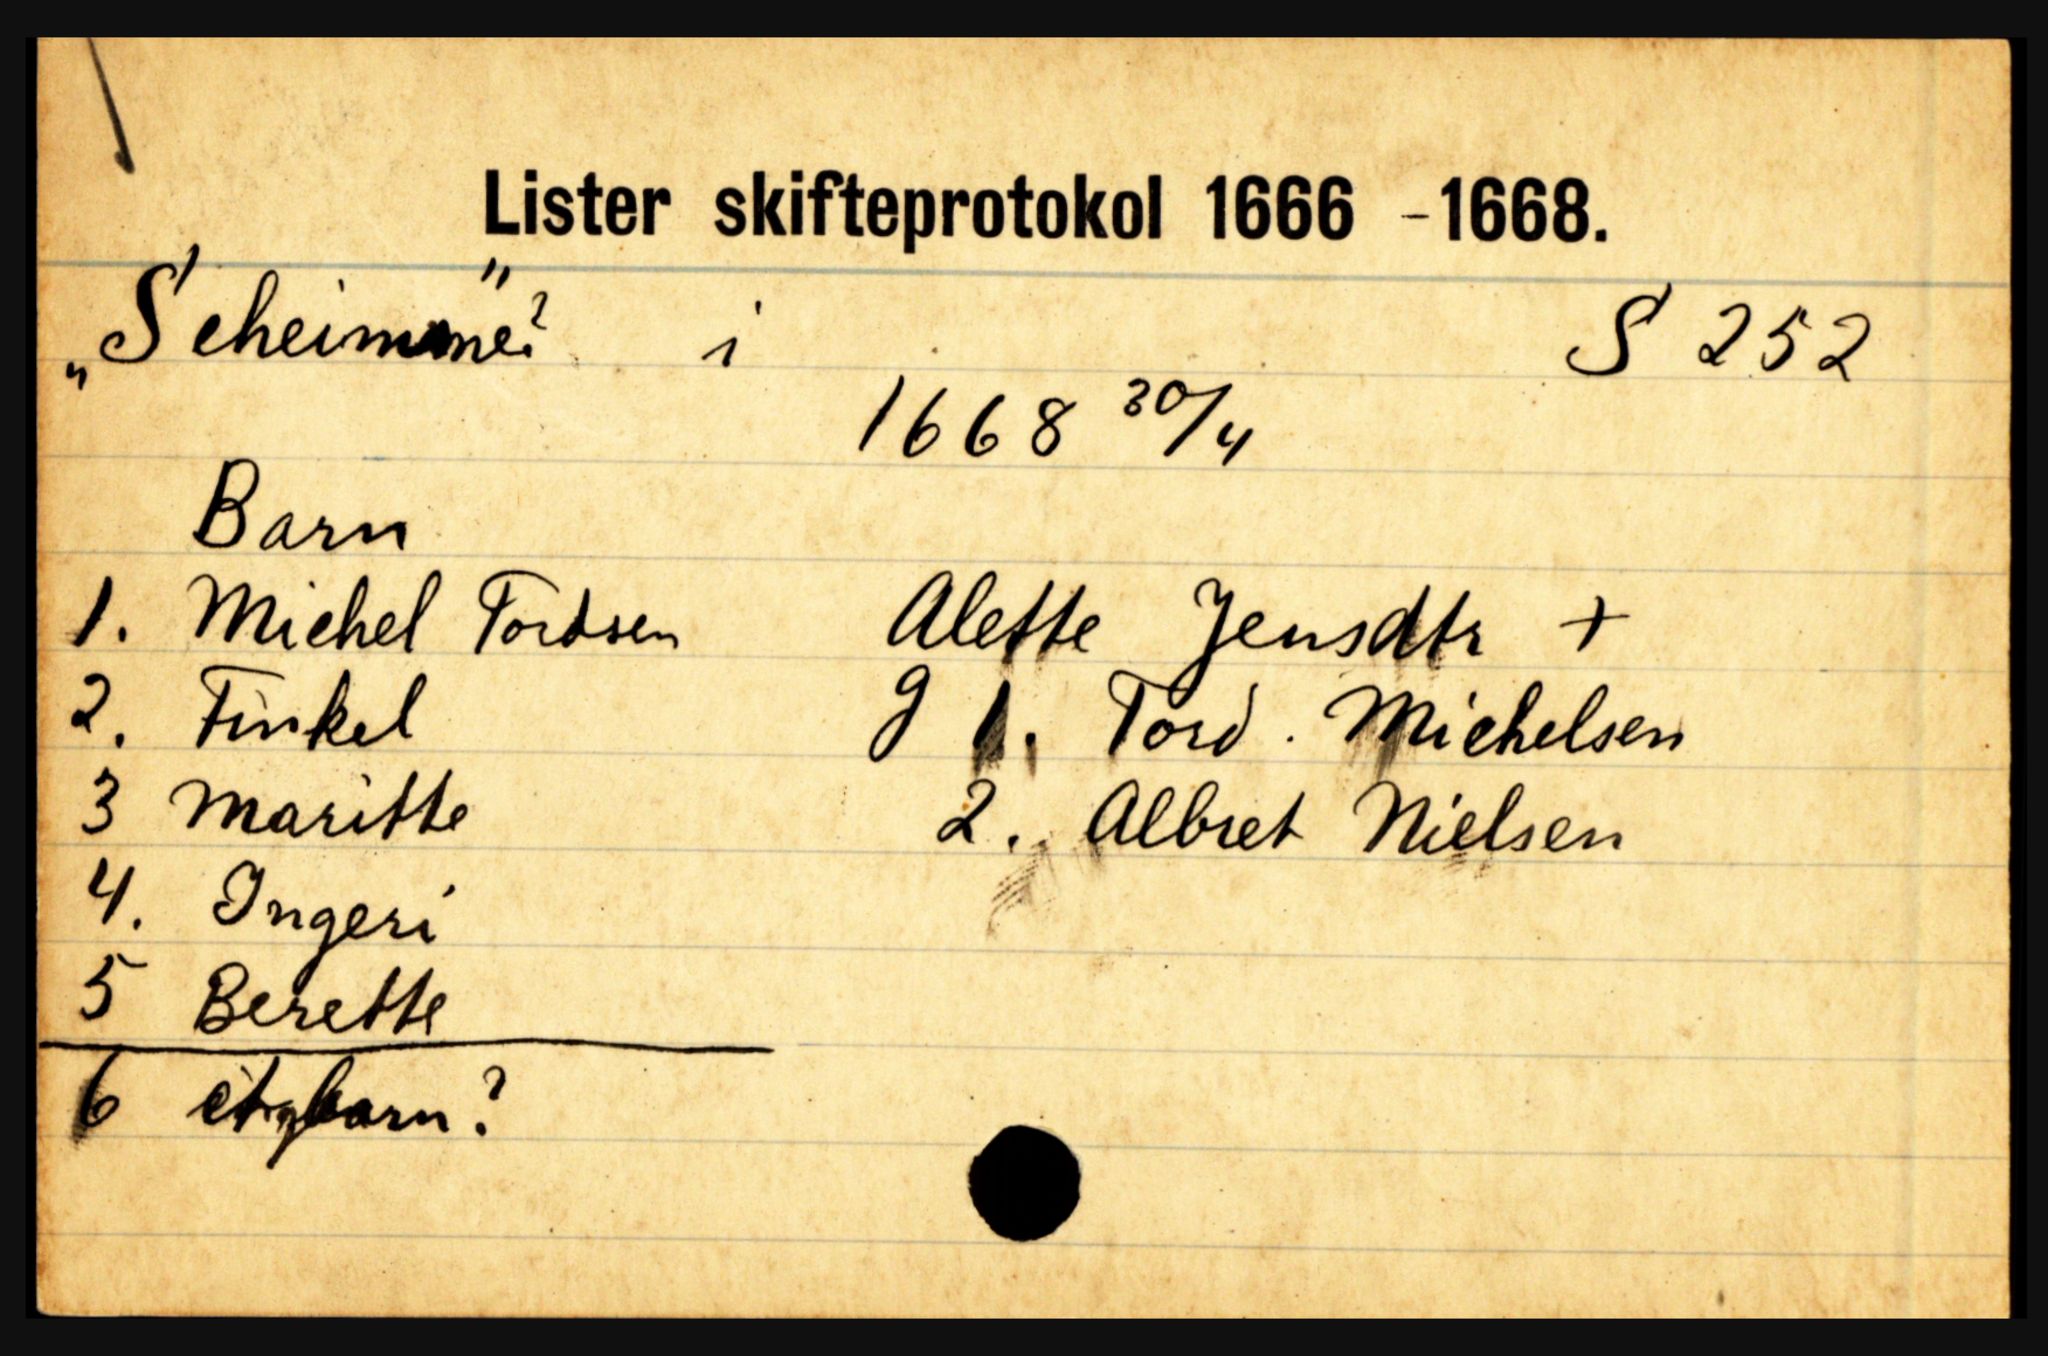 Lister skifteprotokol 1666 - 1668.
„Scheimme?" i S 252
1668 30/4
Barn
1. Michel Tordsen Alette Jensdtr +
2. Finkel g 1. Tord. Michelsen
3 Maritte 2. Albret Nielsen
4. Ingeri
5 Berette
6 et barn?